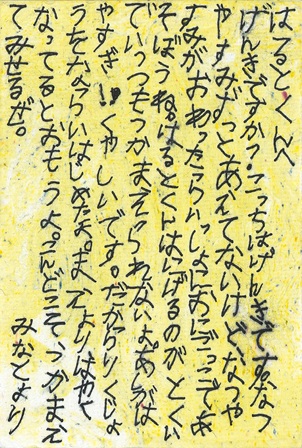 はるとくんへ
げんきですか?こっちはげんきです。なつ
やすみずっとあえてないけど、なつや
すみがおわったらいっしょにおにごっこであ
そぼうね。はるとくんはにげるのがとくい
でいっつもつかまえられないよ。あしがは
やすぎ!!くやしいです。だからりくじょ
うをならいはじめたよ。まえよりはやく
なってるとおもうよ。こんどこそつかまえ
てみせるぜ。
みなとより